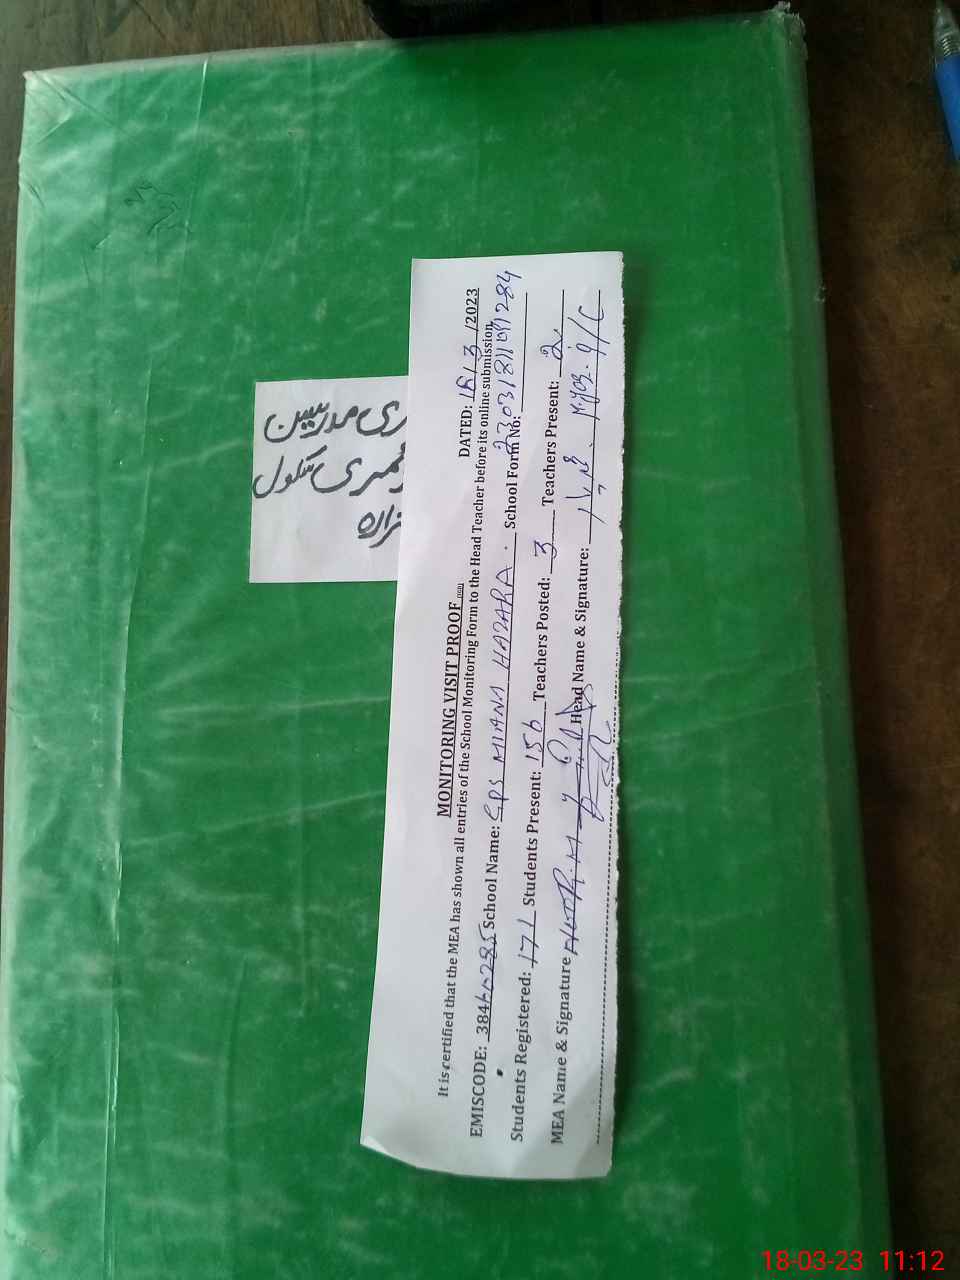 MONITORING VISIT PROOF
DATED: 18/3/2023
It is certified that the MEA has shown all entries of the School Monitoring Form to the Head Teacher before its online submission.
EMISCODE: 384 School Name: GPS MIANA HAZARA. School Form No:
Students Registered: 171 Students Present: 156 Teachers Posted: 3 Teachers Present: 2
MEA Name & Signature Head Name & Signature:
ری مدرسین
مری سکول
زارہ
18-03-23 11:12